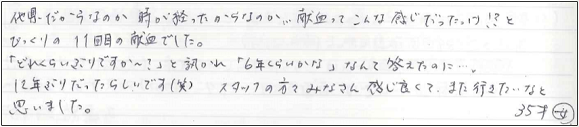 他県だからなのか 時が経ったからなのか… 献血って こんな感じだったっけ!?と
びっくりの 11回目の献血でした。
「どれくらいぶりですか〜?」と訊かれ「6年くらいかな」なんて答えたのに…。
12年ぶりだったらしいです(笑) スタッフの方々みなさん 感じ良くて、また行きた〜いなと
思いました。 35才 女